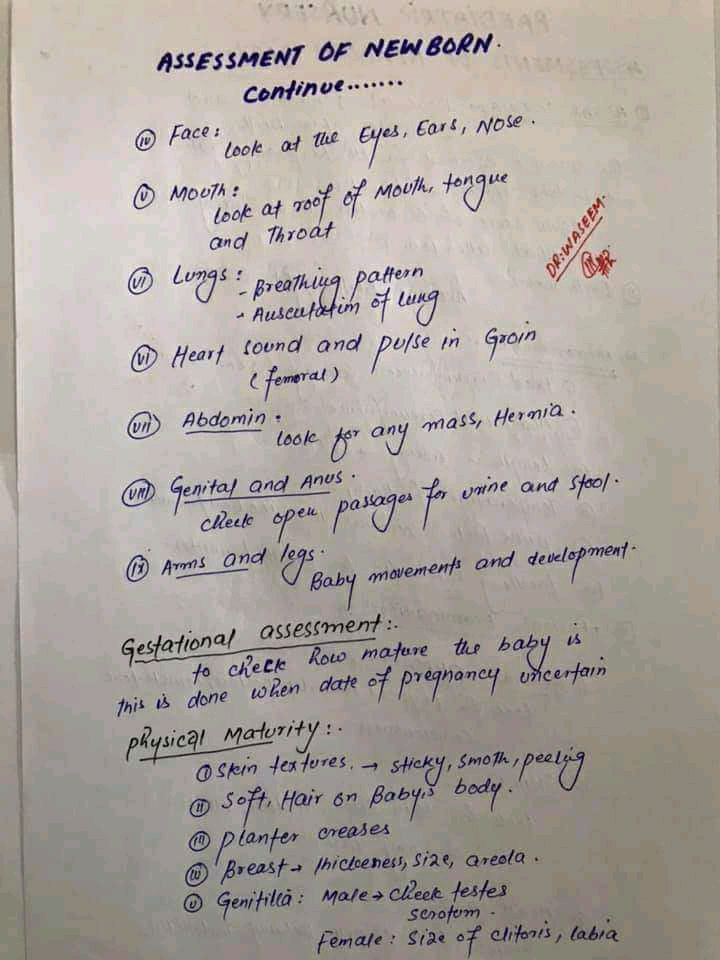 ASSESSMENT OF NEWBORN.
Continue.......
(iv) Face:
look at the Eyes, Ears, Nose.
(v) Mouth:
look at roof of Mouth, tongue
and Throat
DR:WASEEM.
(vi) Lungs:
- Breathing pattern
- Auscutatim of lung
(vi) Heart sound and pulse in Groin
(femoral)
(vii) Abdomin:
look for any mass, Hernia.
(viii) Genital and Anus.
check open passages for urine and stool.
(ix) Arms and legs.
Baby movements and development.
Gestational assessment:.
to check how mature the baby is
this is done when date of pregnancy uncertain
Physical Maturity:.
(i) Skin textures. → sticky, smoth, peeling
(ii) Soft, Hair on Baby,s body.
(iii) planter creases
(iv) Breast → thickeness, size, areola.
(v) Genitilia: Male → check testes
scrotum.
Female: size of clitoris, labia